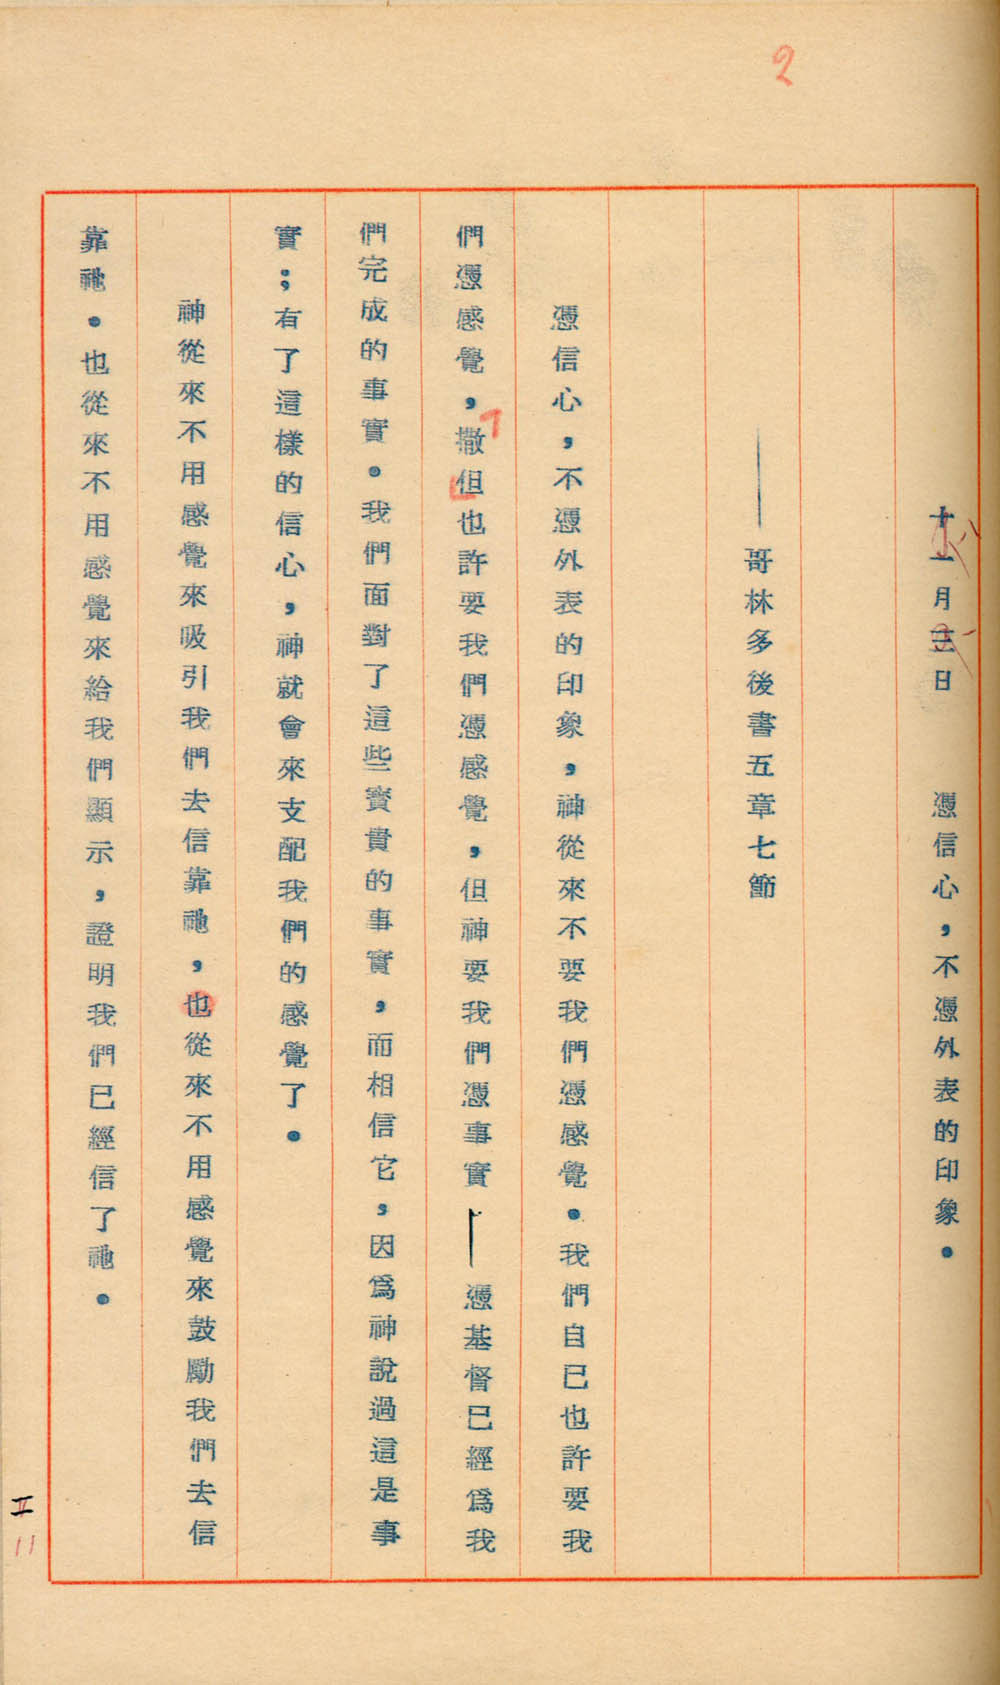 2
十一月三日 憑信心，不憑外表的印象。
——哥林多後書五章七節
憑信心，不憑外表的印象，神從來不要我們憑感覺。我們自己也許要我
們憑感覺，撒但也許要我們憑感覺，但神要我們憑事實—憑基督已經爲我
們完成的事實。我們面對了這些寳貴的事實，而相信它，因爲神說過這是事
實；有了這樣的信心，神就會來支配我們的感覺了。
神從來不用感覺來吸引我們去信靠祂，也從來不用感覺來鼓勵我們去信
靠祂。也從來不用感覺來給我們顯示，證明我們已經信了祂。
II
11